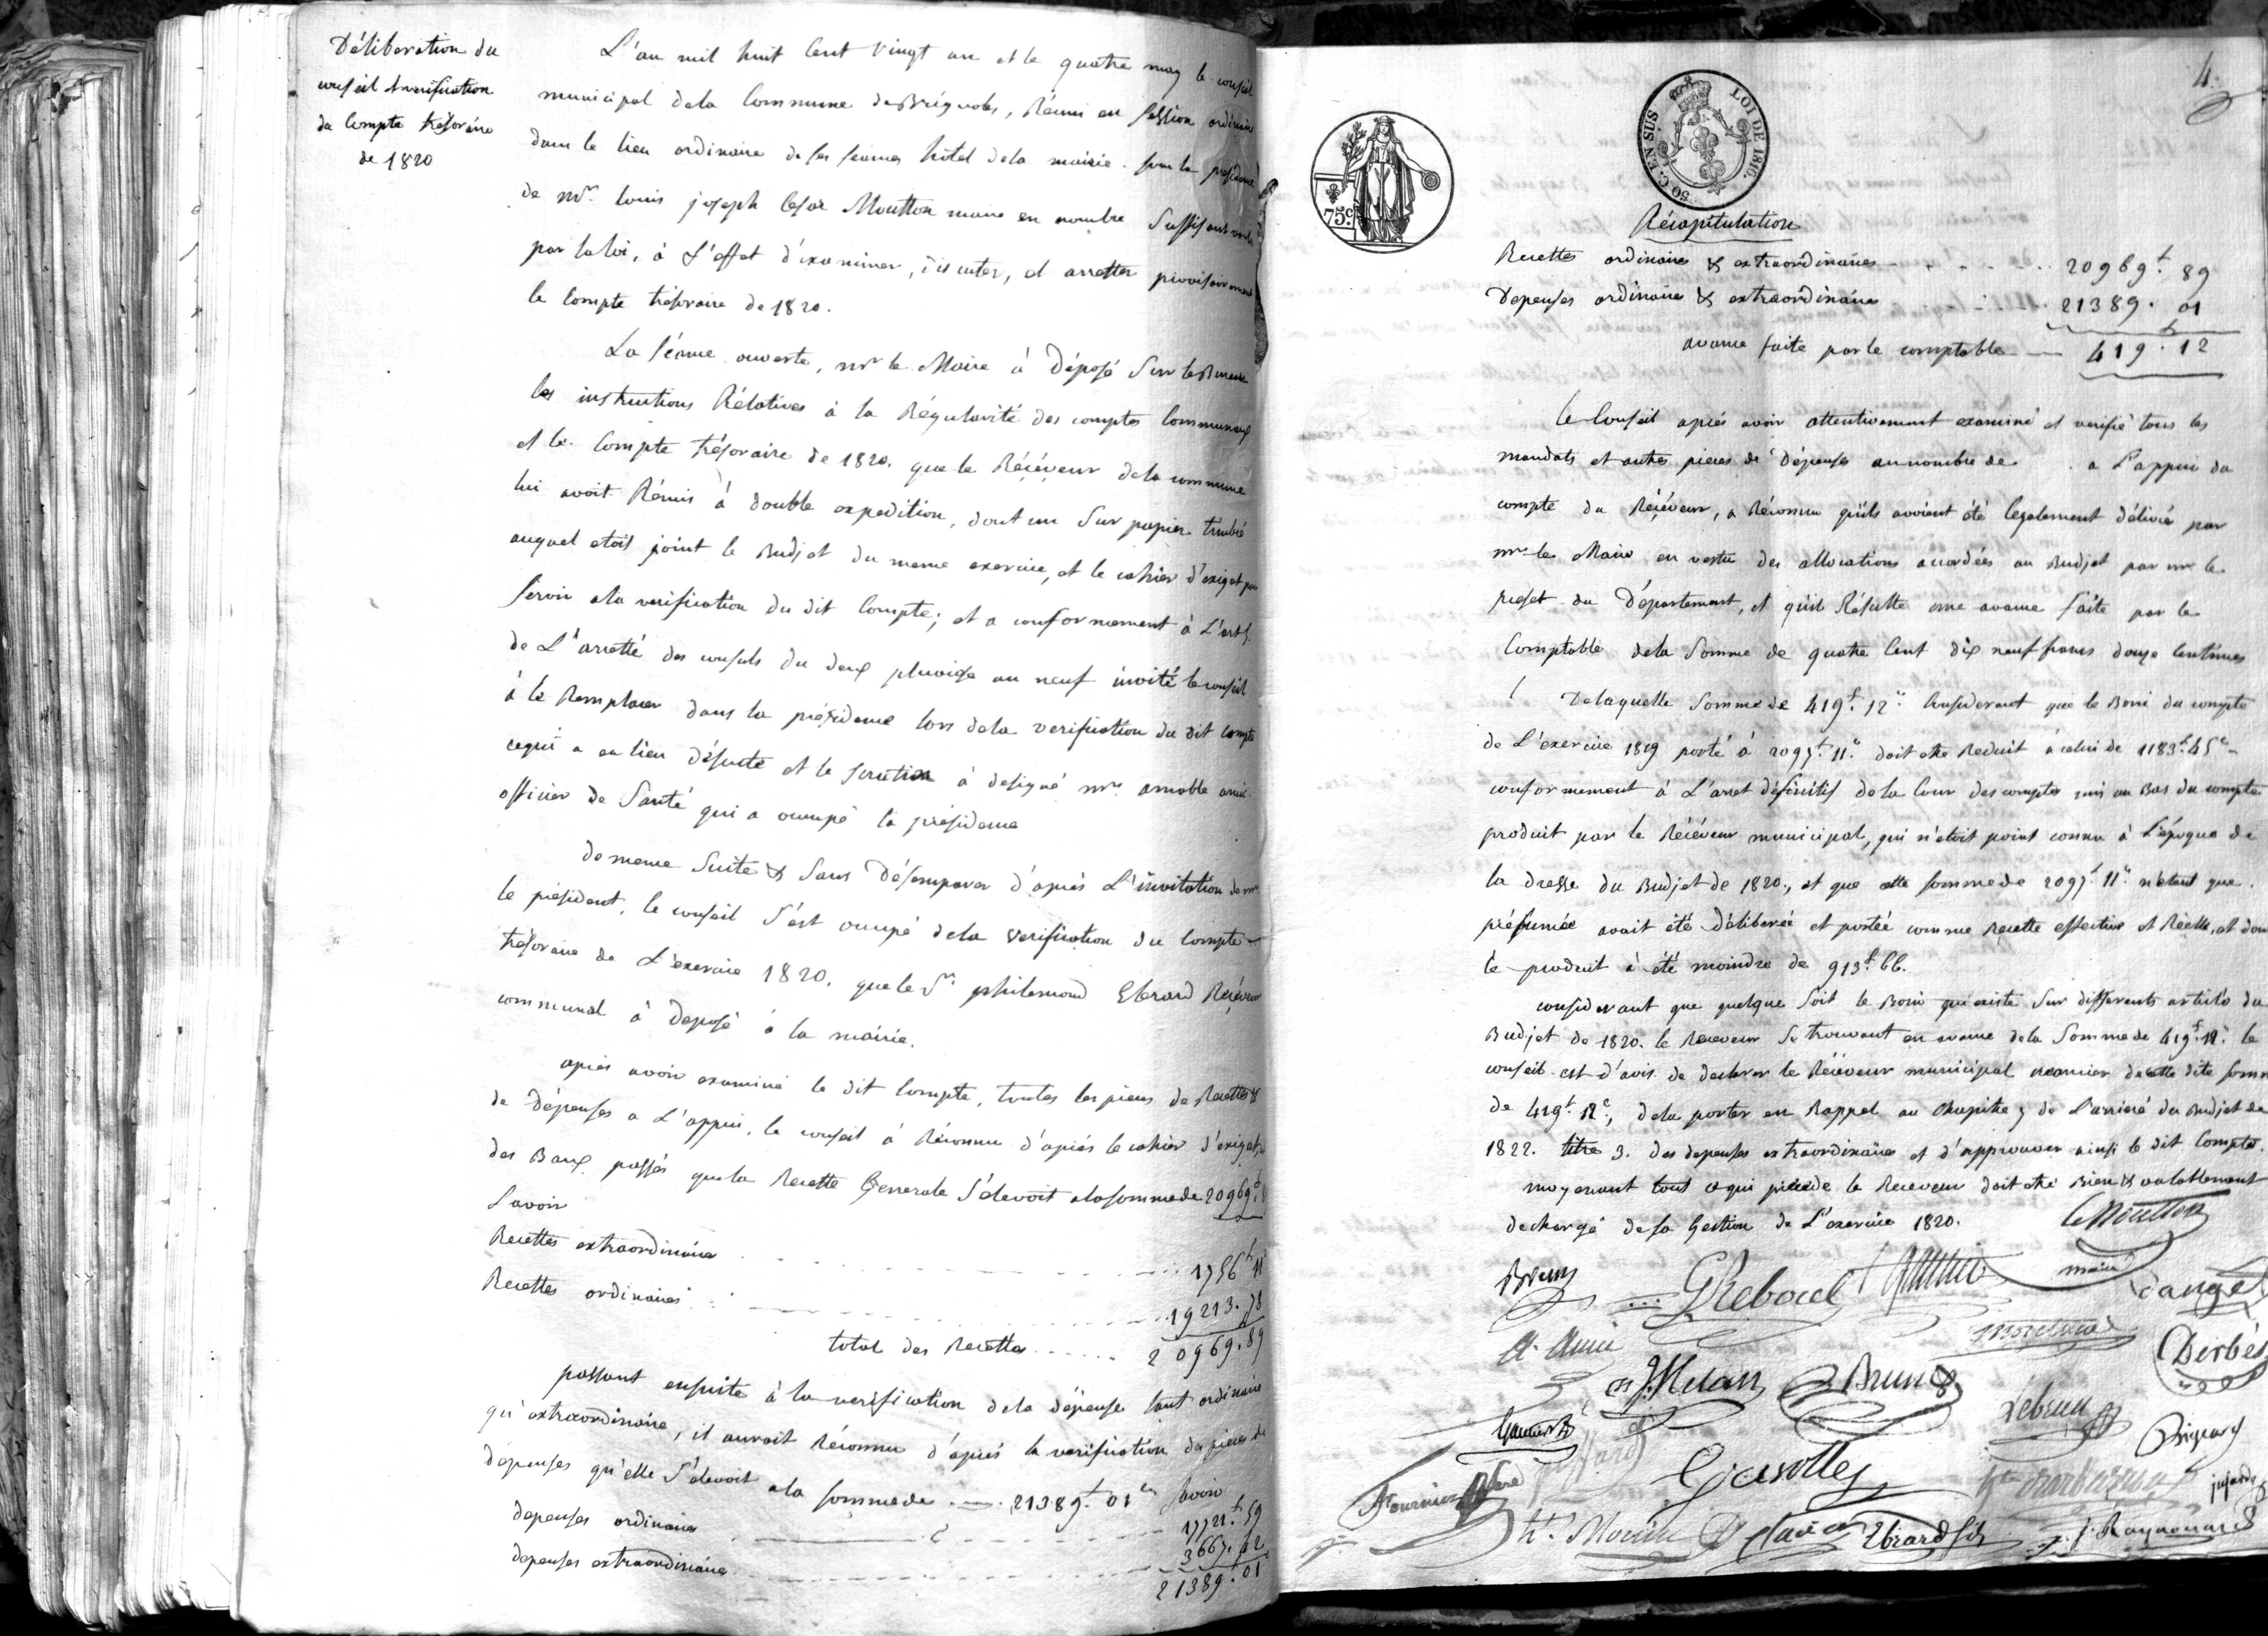 Déliberation du
conseil & verification
du Compte trésoraire
de 1820
L'an mil huit Cent vingt un et le quatre may le conseil
municipal dela Commune de Brignoles, Réuni en Session ordinaire
dans le lieu ordinaire de ses séances hôtel dela mairie. sous la presidence
de mr. louis joseph Cesar Moutton maire en nombre Suffisant voulu
par la loi, à L'effet d'examiner, discuter, et arretter provisoirement
le Compte trésoraire de 1820.
La séance ouverte, mr le Maire à Déposé Sur le Bureau
les instructions Rélatives à la Régularité des comptes Communaux
et le Compte trésoraire de 1820. que le Réçéveur dela commune
lui avoit Rémis à double expedition, dont un Sur papier timbré
auquel etoit joint le Budjet du meme exercice, et le cahier d'exigat pour
servir ala verification du dit Compte; et a conformement à L'art.
de L'arretté des consuls du deux pluviose an neuf invité le conseil
à le Remplacer dans la présidence lors dela verification du dit compte
cequi a eu lieu Désuite et le scrutin à designé mr. amable amic
officier de Santé qui a occupé la présidence
de meme Suite & Sans Désemparer d'après L'invitation de mr
le président, le conseil S'est occupé dela verification du Compte
trésoraire de L'exercice 1820. que le Sr. philemond Ebrard Reçéveur
communal à deposé à la mairie.
après avoir examiné le dit Compte, toutes les pieces de Recettes &
de Dépenses a L'appui, le conseil à Réconnu d'après le cahier d'exigat,
des Baux passés que la Recette Generale S'élevoit ala somme de 20969f.
Savoir
Recettes extraordinaires 1756f 11
Recettes ordinaires 19213. 78
total des Recettes 20969. 89
passant ensuite à la verification dela dépense tant ordinaire
qu'extraordinaire, il auroit Réconnu d'après la verification des pieces de
depenses qu'elle S'élevoit ala somme de 21389f. 01c Savoir
depenses ordinaires 17721f. 59
depenses extraordinaires 3667. 42
21389. 01
4.
75c.
50 C. EN SUS
LOI DE 1816.
Récapitulation
Recettes ordinaires & extraordinaires 20969f. 89
Depenses ordinaires & extraordinaires 21389. 01
avance faite par le comptable 419. 12
Le Conseil après avoir attentivement examiné et verifié tous les
mandats et autres pieces de Dépenses au nombre de a L'appui du
compte du Réçéveur, a Réconnu qu'ils avoient été legalement délivrés par
mr le Maire en vertu des allocations accordées au Budjet par mr le
prefet du Département, et qu'il Résulte une avance faite par le
Comptable dela Somme de quatre Cent dix neuf francs douze Centimes
Delaquelle Somme de 419f. 12c Considerant que le Boni du compte
de L'exercice 1819 porté à 2097f. 11c. doit etre Reduit à celui de 1183f. 45c
conformement à L'arret définitif dela Cour des comptes mis au Bas du compte
produit par le Réçéveur municipal, qui n'etoit point connu à L'époque de
la dresse du Budjet de 1820, et que cette somme de 2097f. 11c n'etant que
présumée avoit été déliberée et portée comme Recette effective et Réelle, et dont
le produit à été moindre de 913f. 66.
considerant que quelque soit le Boni qui existe Sur differents articles du
Budjet de 1820. le Receveur Se trouvant en avance dela Somme de 419f. 12c. le
conseil est d'avis de declarer le Réçéveur municipal créancier de cette dite somme
de 419f. 12c, dela porter en Rappel au Chapitre 7 de L'arrieré du Budjet de
1822. titre 3. des depenses extraordinaires et d'approuver ainsi le dit Compte.
moyenant tout cequi précède le Receveur doit etre Bien & valablement
dechargé de sa Gestion de L'exercice 1820.
Cr Moutton
maire
Brun
GReboul
Dangé
A. Amic
Jh Melan
Brun
Derbès
Lebrun
Fournier
Garolles
Ht. Morin
Clavier
Ebrard fils
J. Raynouard